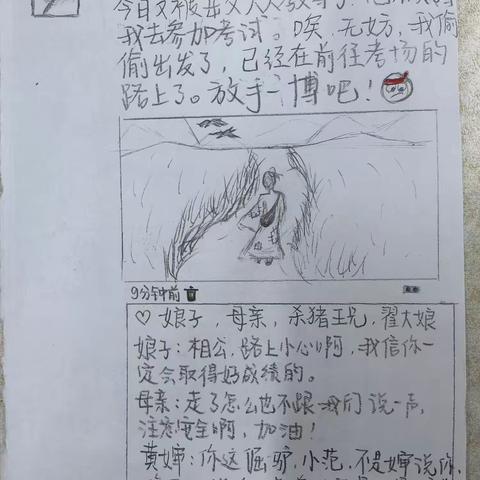 今日又被岳父大人教导了！他不
我去参加考试。唉，无妨，我偷
偷出发了，已经在前往考场的
路上了。放手一博吧！
9分钟前
♡ 娘子，母亲，杀猪王兄，翟大娘
娘子：相公，路上小心啊，我信你一
定会取得好成绩的。
母亲：走了怎么也不跟我们说一声，
注意安全啊，加油！
黄婶：你这倔驴，小范，不是婶说你，